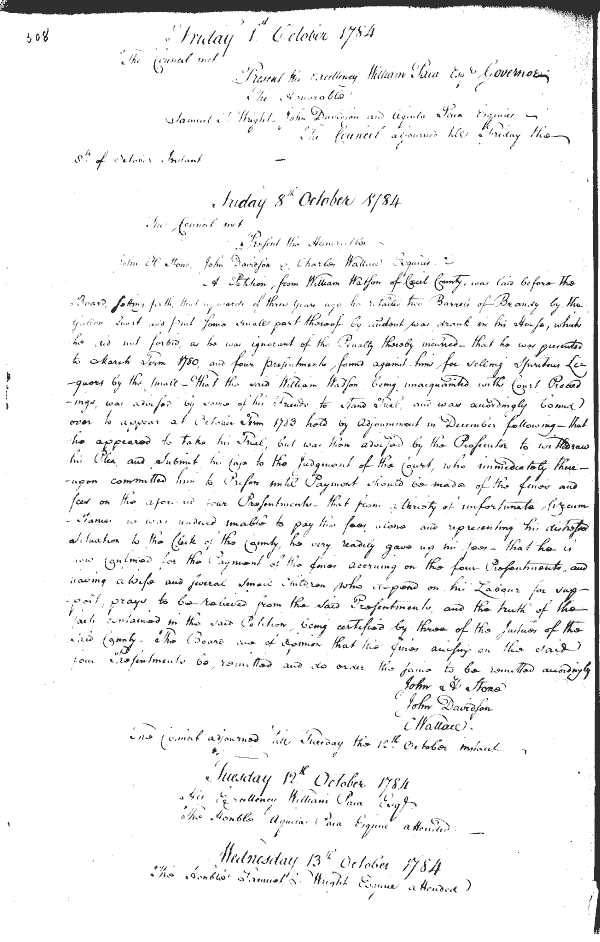 308
Friday 1st October 1784
The Council met
Present His Excellency William Paca Esqr Governor
The Honorable
Samuel T. Wright John Davidson and Aquila Paca Esquires
The Council adjourned till Friday the
8th of October Instant
Friday 8th October 1784
The Council met
Present the Honorable
John H Stone, John Davidson & Charles Wallace Esquires
A Petition from William Watson of Cecil County, was laid before the
Board, setting forth, that upwards of three years ago he retailed two Barrels of Brandy by the
Gallon Quart and pint some small part thereof by accident was drank in his House, which
he did not forbid, as he was ignorant of the Penalty thereby incurred – that he was presented
to March Term 1780, and four presentments found against him for selling Spiritous Li-
-quors by the small – that the said William Watson being unacquainted with Court Proceed
-ings, was advised by some of his Friends to Stand Trial, and was accordingly bound
over to appear at October Term 1783 held by Adjournment in December following – that
he appeared to take his Trial, but was then advised by the Prosecutor to withdraw
his Plea, and submit his Case to the Judgment of the Court, who immediately there-
-upon committed him to Prison until Payment should be made of the fines and
fees on the aforesaid four Presentments – that from a Variety of unfortunate Circum-
-stances he was rendered unable to pay his fees alone and representing his distressed
situation to the Clerk of the County, he very readily gave up his fees – that he is
now confined for the Payment of the fines accruing on the four Presentments, and
having a Wife and several small Children who depend on his Labour for sup-
-port, prays, to be relieved from the said Presentments, and the truth of the
facts contained in the said Petition, being certified by three of the Justices of the
said County – The Board are of Opinion that the fines arising on the said
four Presentments be remitted and do order the same to be remitted accordingly
John H Stone
John Davidson
C Wallace.
The Council adjourned till Tuesday the 12th October instant
Tuesday 12th October 1784
His Excellency William Paca Esqr
The Honble Aquila Paca Esquire attended
Wednesday 13th October 1784
The Honble Samuel T. Wright Esquire attended